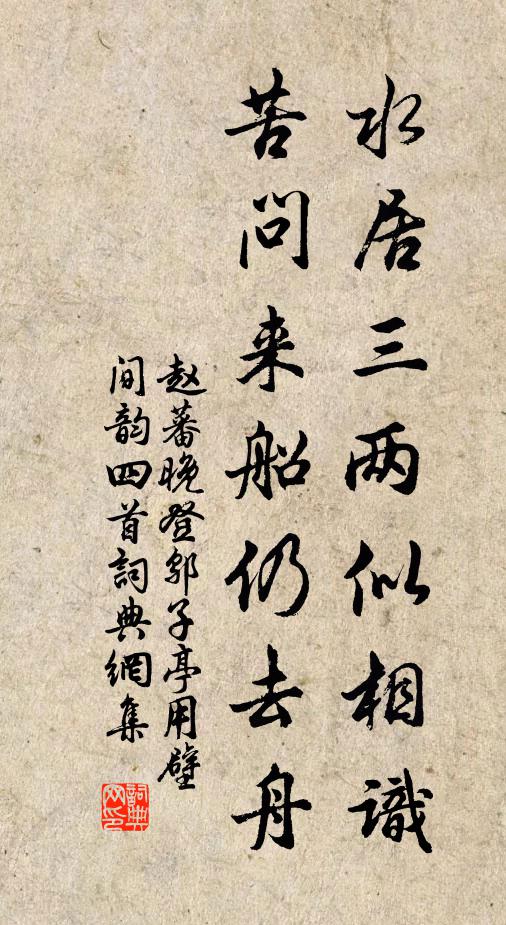 水居三两似相識
苦问来船仍去舟
赵蕃晚登邬子亭用壁
间韵四首詞典網集
詞典
网印